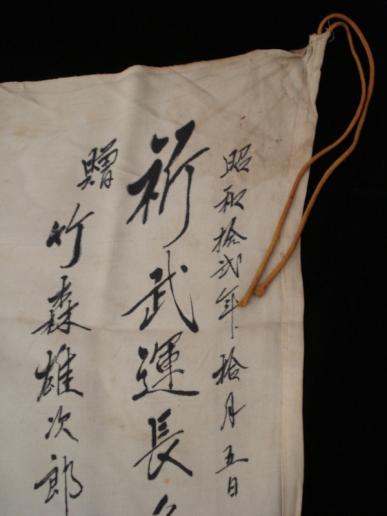 昭和拾弐年拾月五日
祈武運長久
贈 竹森雄次郎